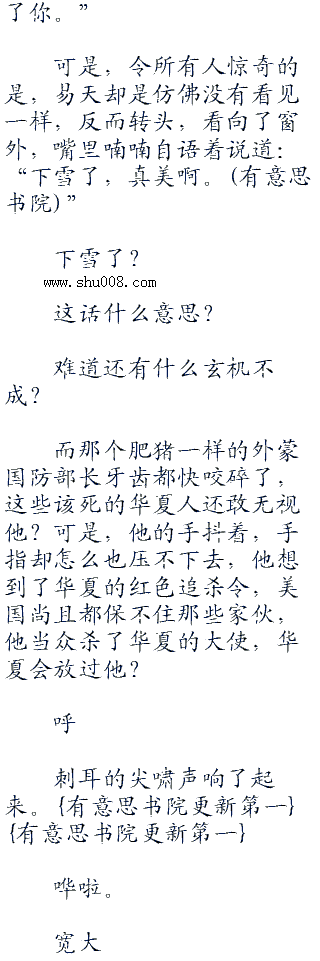 了你。”
可是，令所有人惊奇的
是，易天却是仿佛没有看见
一样，反而转头，看向了窗
外，嘴里喃喃自语着说道：
“下雪了，真美啊。(有意思
书院)”
下雪了？
www.shu008.com
这话什么意思？
难道还有什么玄机不
成？
而那个肥猪一样的外蒙
国防部长牙齿都快咬碎了，
这些该死的华夏人还敢无视
他？可是，他的手抖着，手
指却怎么也压不下去，他想
到了华夏的红色追杀令，美
国尚且都保不住那些家伙，
他当众杀了华夏的大使，华
夏会放过他？
呼
刺耳的尖啸声响了起
来。{有意思书院更新第一}
{有意思书院更新第一}
哗啦。
宽大